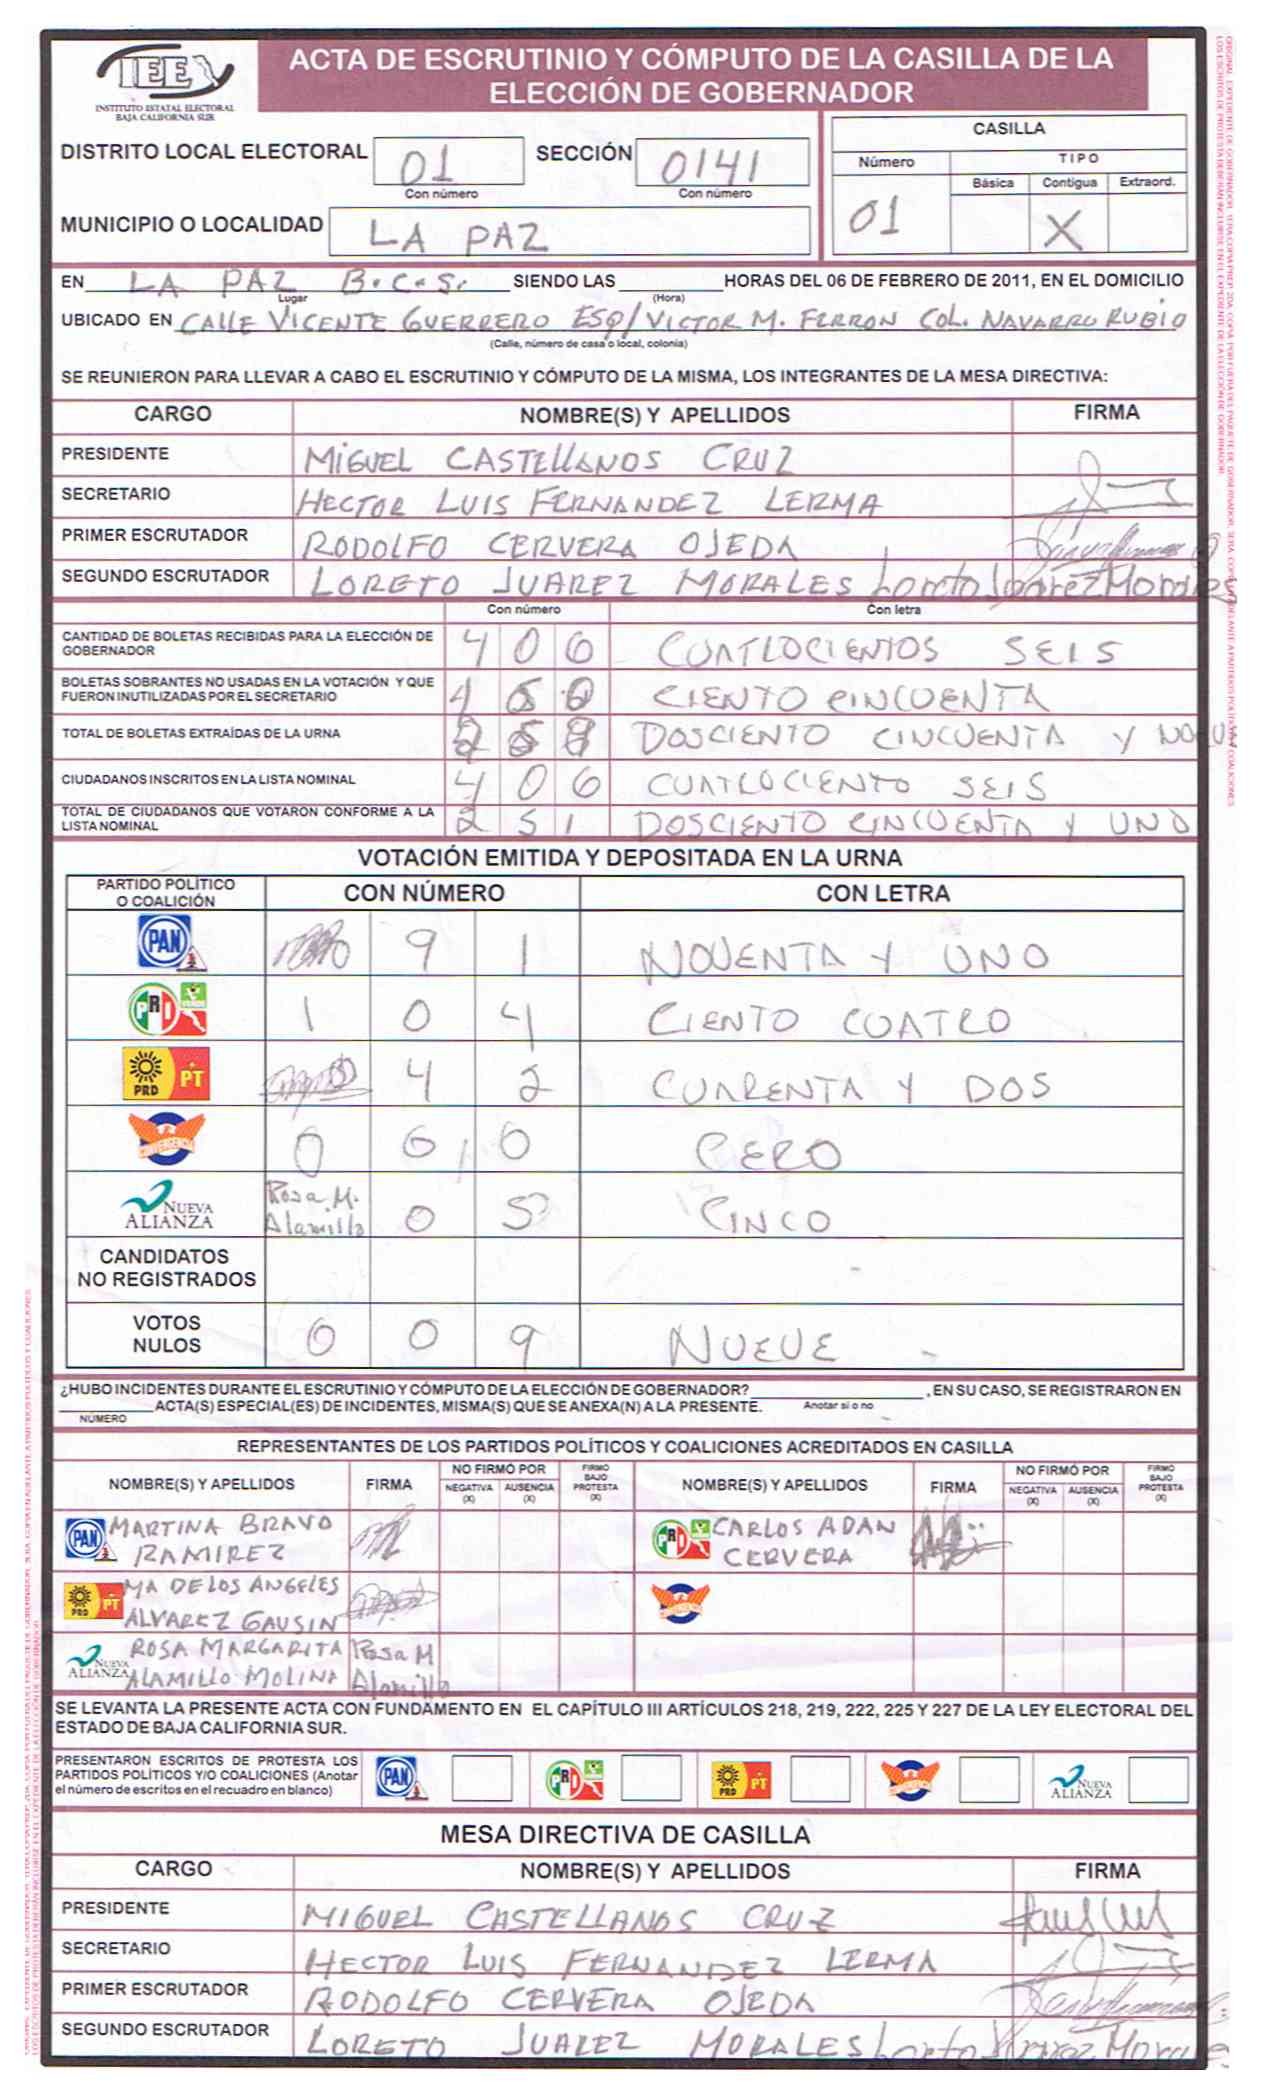 IEE
INSTITUTO ESTATAL ELECTORAL
BAJA CALIFORNIA SUR
ACTA DE ESCRUTINIO Y CÓMPUTO DE LA CASILLA DE LA
ELECCIÓN DE GOBERNADOR
DISTRITO LOCAL ELECTORAL 01 SECCIÓN 0141
Con número Con número
MUNICIPIO O LOCALIDAD LA PAZ
CASILLA
Número TIPO
Básica Contigua Extraord.
01 X
EN LA PAZ B.C.S. SIENDO LAS HORAS DEL 06 DE FEBRERO DE 2011, EN EL DOMICILIO
Lugar (Hora)
UBICADO EN CALLE VICENTE GUERRERO ESQ/ VICTOR M. FERRON COL. NAVARRO RUBIO
(Calle, número de casa o local, colonia)
SE REUNIERON PARA LLEVAR A CABO EL ESCRUTINIO Y CÓMPUTO DE LA MISMA, LOS INTEGRANTES DE LA MESA DIRECTIVA:
CARGO NOMBRE(S) Y APELLIDOS FIRMA
PRESIDENTE MIGUEL CASTELLANOS CRUZ
SECRETARIO HECTOR LUIS FERNANDEZ LERMA
PRIMER ESCRUTADOR RODOLFO CERVERA OJEDA
SEGUNDO ESCRUTADOR LORETO JUAREZ MORALES Loreto Juarez Morales
Con número Con letra
CANTIDAD DE BOLETAS RECIBIDAS PARA LA ELECCIÓN DE
GOBERNADOR 406 CUATLOCIENTOS SEIS
BOLETAS SOBRANTES NO USADAS EN LA VOTACIÓN Y QUE
FUERON INUTILIZADAS POR EL SECRETARIO CIENTO CINCUENTA
TOTAL DE BOLETAS EXTRAÍDAS DE LA URNA DOSCIENTO CINCUENTA Y
CIUDADANOS INSCRITOS EN LA LISTA NOMINAL 406 CUATLOCIENTO SEIS
TOTAL DE CIUDADANOS QUE VOTARON CONFORME A LA
LISTA NOMINAL 251 DOSCIENTO CINCUENTA Y UNO
VOTACIÓN EMITIDA Y DEPOSITADA EN LA URNA
PARTIDO POLÍTICO
O COALICIÓN CON NÚMERO CON LETRA
PAN 9 1 NOVENTA Y UNO
PRI VERDE 1 0 4 CIENTO CUATRO
PRD PT 4 2 CUARENTA Y DOS
CONVERGENCIA 0 0 0 CERO
NUEVA ALIANZA Rosa M. Alamillo 0 5 CINCO
CANDIDATOS
NO REGISTRADOS
VOTOS
NULOS 0 0 9 NUEVE
¿HUBO INCIDENTES DURANTE EL ESCRUTINIO Y CÓMPUTO DE LA ELECCIÓN DE GOBERNADOR? , EN SU CASO, SE REGISTRARON EN
ACTA(S) ESPECIAL(ES) DE INCIDENTES, MISMA(S) QUE SE ANEXA(N) A LA PRESENTE. Anotar si o no
NÚMERO
REPRESENTANTES DE LOS PARTIDOS POLÍTICOS Y COALICIONES ACREDITADOS EN CASILLA
NOMBRE(S) Y APELLIDOS FIRMA NO FIRMÓ POR NEGATIVA (X) AUSENCIA (X) FIRMO BAJO PROTESTA (X) NOMBRE(S) Y APELLIDOS FIRMA NO FIRMÓ POR NEGATIVA (X) AUSENCIA (X) FIRMO BAJO PROTESTA (X)
PAN MARTINA BRAVO PRI CARLOS ADAN
RAMIREZ CERVERA
PRD PT MA DE LOS ANGELES
ALVAREZ GAUSIN
NUEVA ALIANZA ROSA MARGARITA Rosa M
ALAMILLO MOLINA Alamillo
SE LEVANTA LA PRESENTE ACTA CON FUNDAMENTO EN EL CAPÍTULO III ARTÍCULOS 218, 219, 222, 225 Y 227 DE LA LEY ELECTORAL DEL
ESTADO DE BAJA CALIFORNIA SUR.
PRESENTARON ESCRITOS DE PROTESTA LOS
PARTIDOS POLÍTICOS Y/O COALICIONES (Anotar
el número de escritos en el recuadro en blanco)
PAN PRI PRD PT CONVERGENCIA NUEVA ALIANZA
MESA DIRECTIVA DE CASILLA
CARGO NOMBRE(S) Y APELLIDOS FIRMA
PRESIDENTE MIGUEL CASTELLANOS CRUZ
SECRETARIO HECTOR LUIS FERNANDEZ LERMA
PRIMER ESCRUTADOR RODOLFO CERVERA OJEDA
SEGUNDO ESCRUTADOR LORETO JUAREZ MORALES Loreto Juarez Morales